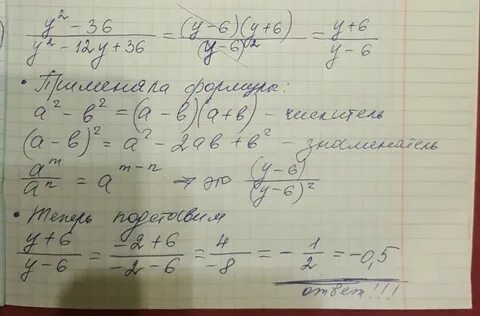 y² - 36 / y² - 12y + 36 = (y-6)(y+6) / (y-6)² = y+6 / y-6
• Применяла формулы:
a² - b² = (a - b)(a+b) - числитель
(a - b)² = a² - 2ab + b² - знаменатель
a^m / a^n = a^(m-n) → это (y-6) / (y-6)²
• Теперь подставим
y+6 / y-6 = -2+6 / -2-6 = 4 / -8 = - 1/2 = -0,5
ответ!!!